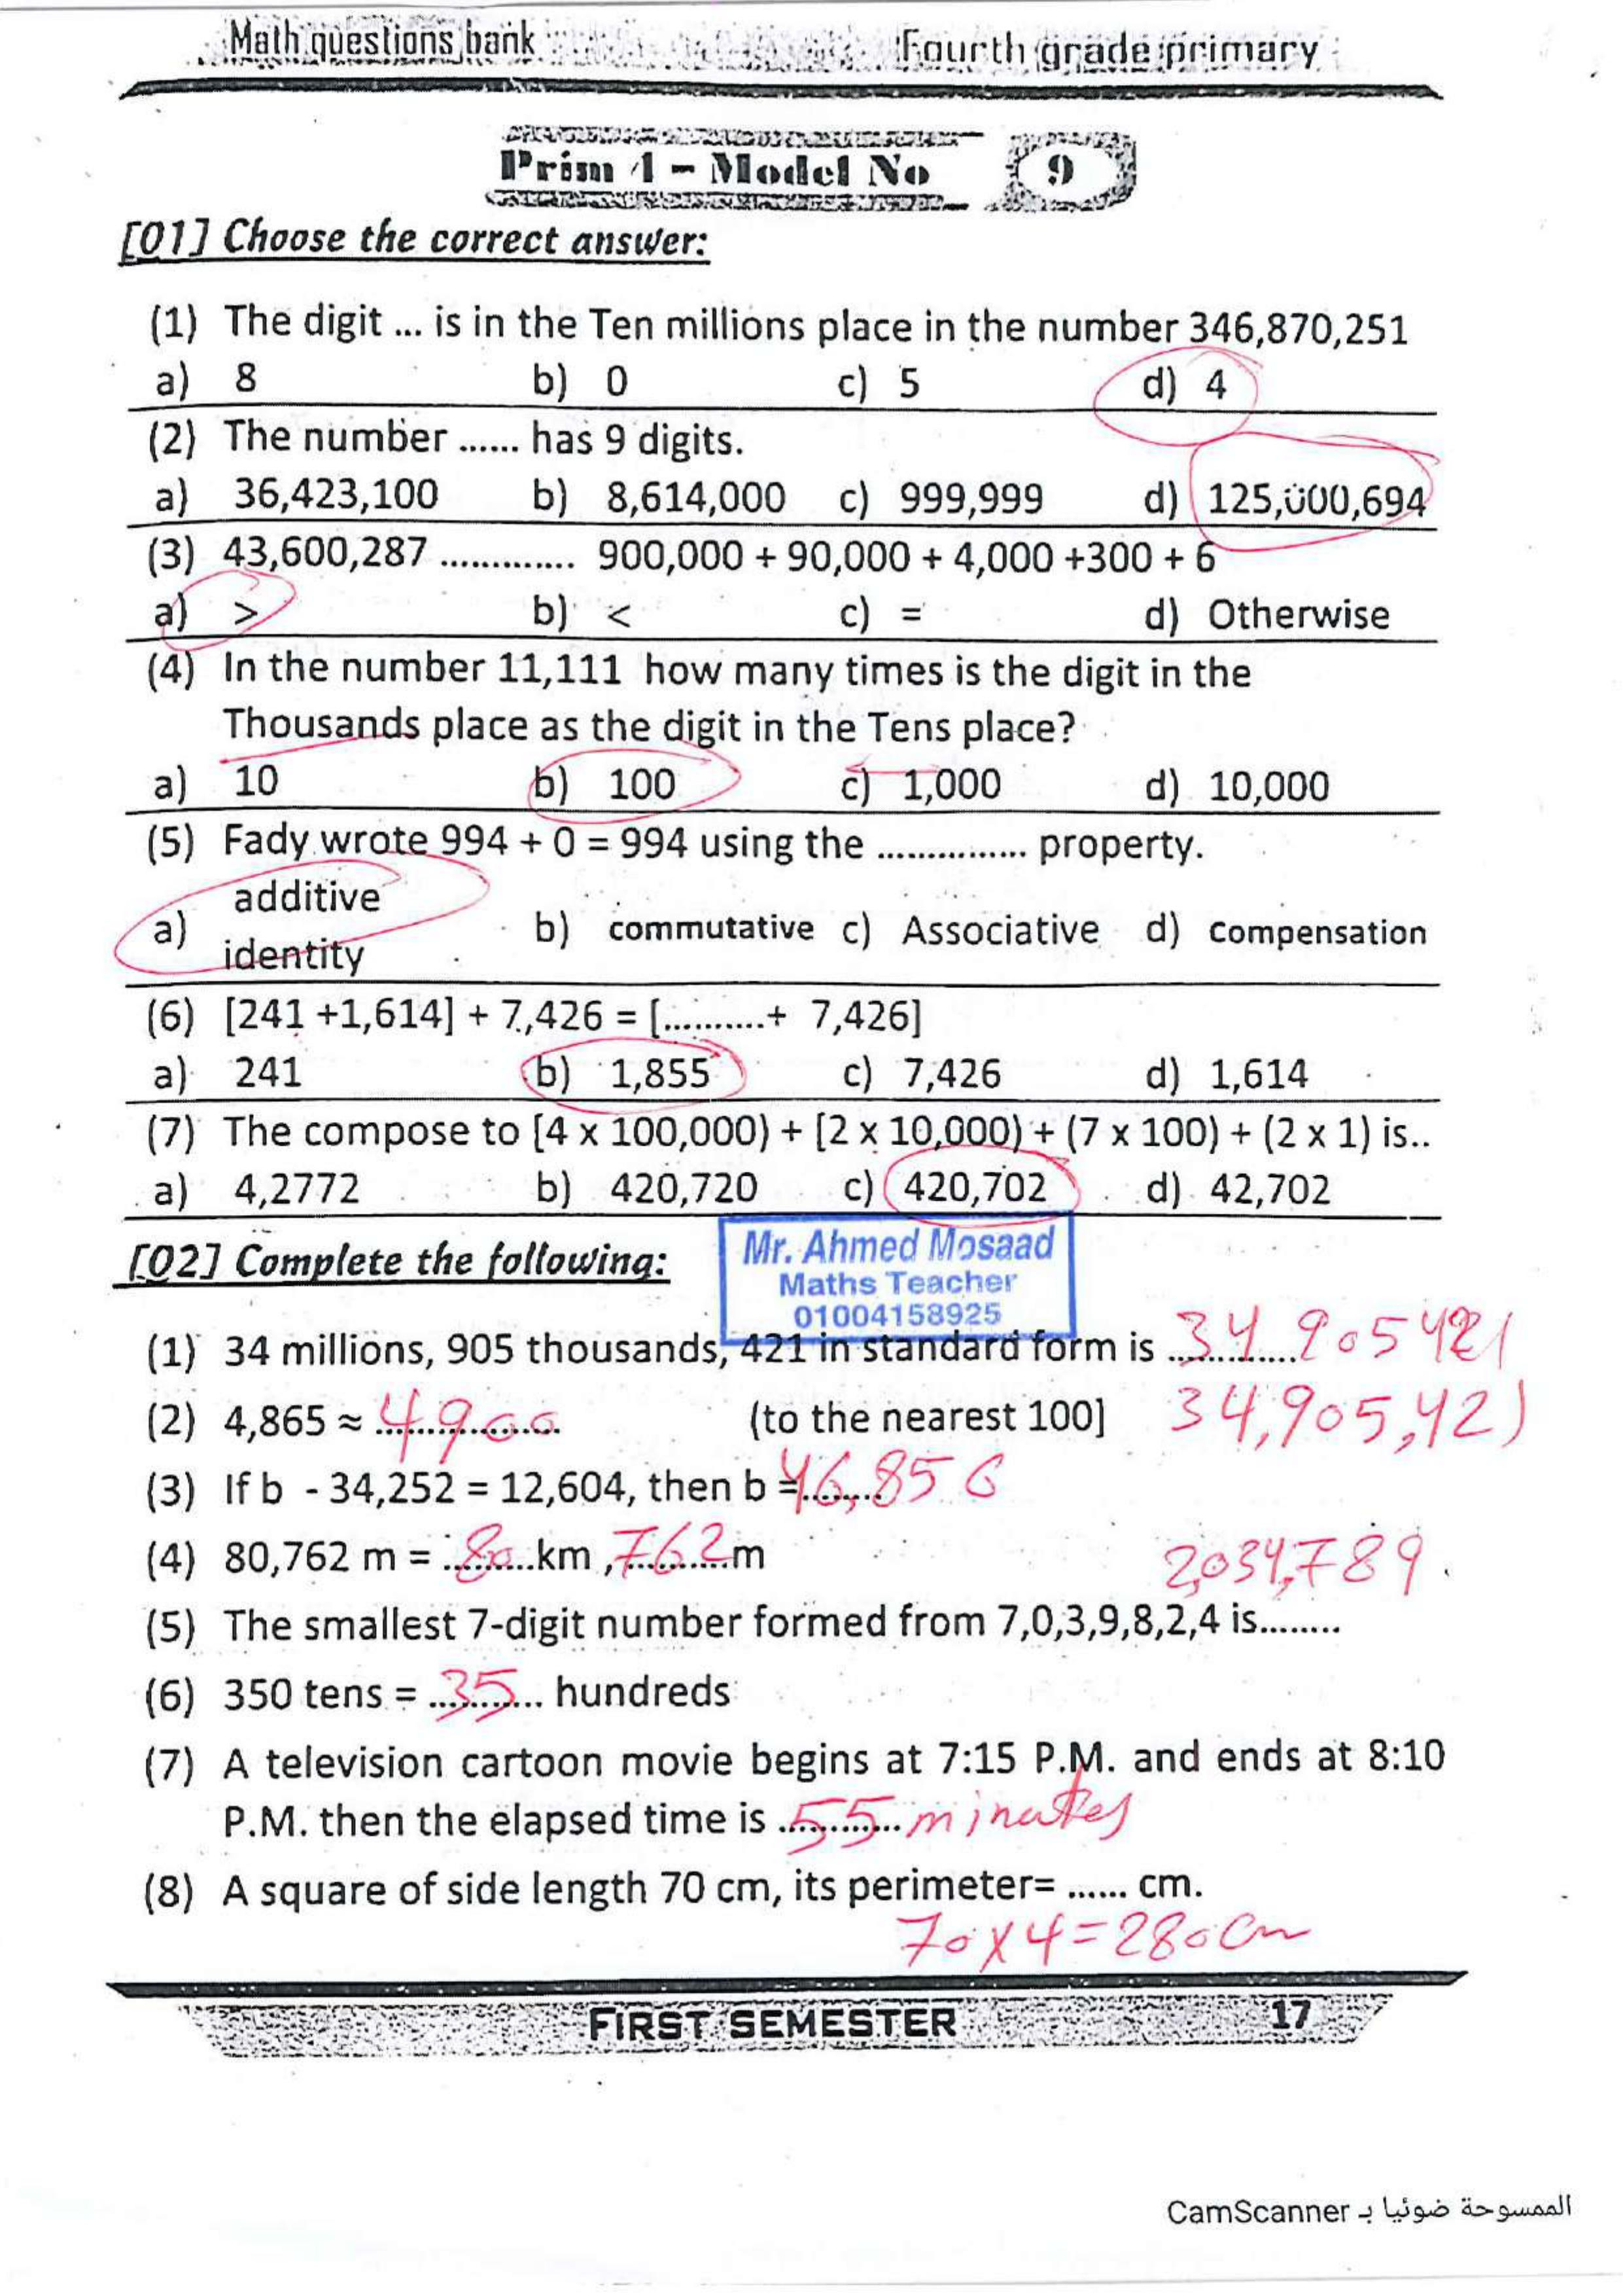 Math questions bank Fourth grade primary
Prim 4 - Model No 9
[01] Choose the correct answer:
(1) The digit ... is in the Ten millions place in the number 346,870,251
a) 8 b) 0 c) 5 d) 4
(2) The number ...... has 9 digits.
a) 36,423,100 b) 8,614,000 c) 999,999 d) 125,000,694
(3) 43,600,287 ............. 900,000 + 90,000 + 4,000 +300 + 6
a) > b) < c) = d) Otherwise
(4) In the number 11,111 how many times is the digit in the
Thousands place as the digit in the Tens place?
a) 10 b) 100 c) 1,000 d) 10,000
(5) Fady wrote 994 + 0 = 994 using the ............... property.
a) additive identity b) commutative c) Associative d) Compensation
(6) [241 +1,614] + 7,426 = [..........+ 7,426]
a) 241 b) 1,855 c) 7,426 d) 1,614
(7) The compose to [4 x 100,000) + [2 x 10,000) + (7 x 100) + (2 x 1) is..
a) 4,2772 b) 420,720 c) 420,702 d) 42,702
[02] Complete the following:
Mr. Ahmed Mosaad
Maths Teacher
01004158925
(1) 34 millions, 905 thousands, 421 in standard form is 34 905 421
34,905,421
(2) 4,865 ≈ 4900 (to the nearest 100]
(3) If b - 34,252 = 12,604, then b = 46,856
(4) 80,762 m = 80 km , 762 m
2,034,789
(5) The smallest 7-digit number formed from 7,0,3,9,8,2,4 is........
(6) 350 tens = 35 hundreds
(7) A television cartoon movie begins at 7:15 P.M. and ends at 8:10
P.M. then the elapsed time is 55 minutes
(8) A square of side length 70 cm, its perimeter= ...... cm.
70 x 4 = 280 cm
FIRST SEMESTER 17
الممسوحة ضوئيا بـ CamScanner